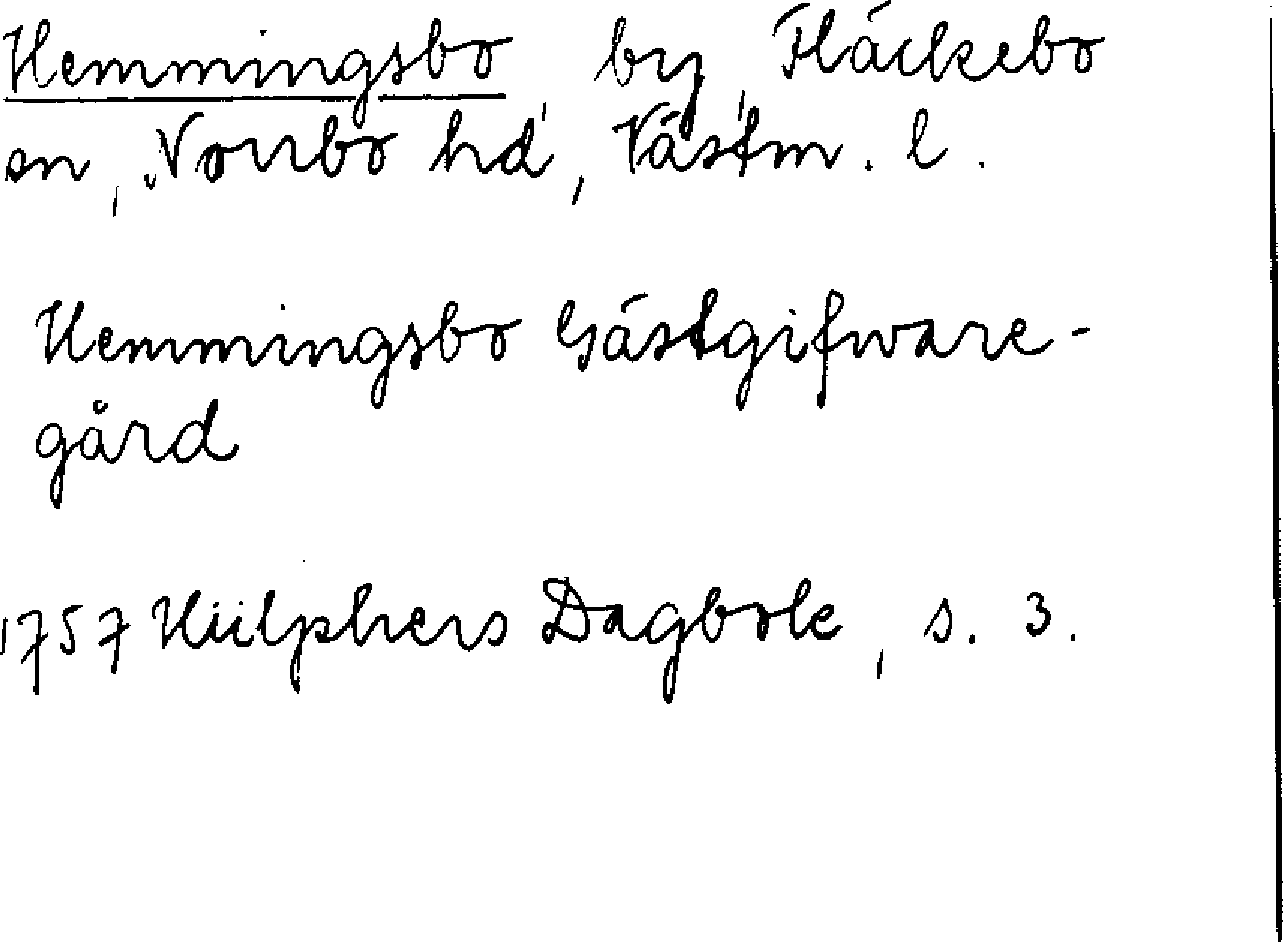 Hemmingsbo by, Fläckebo
sn, Norrbo hd, Västm. l.
Hemmingsbo Gästgifware-
gård
1757 Hülphers Dagbok, s. 3.